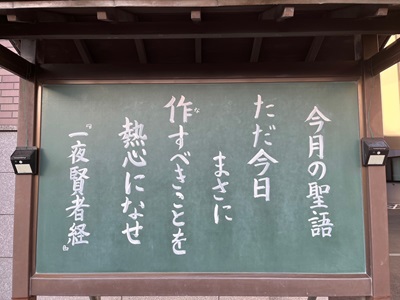 今月の聖語
ただ今日
まさに
作すべきことを
熱心になせ
『一夜賢者経』